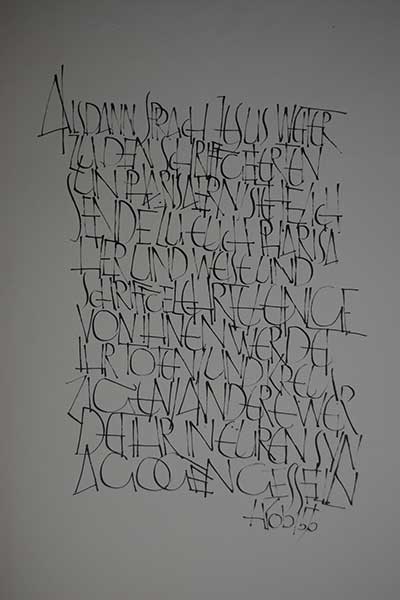 ALSDANN SPRACH JESUS WEITER
ZU DEN SCHRIFTGELEHRTEN
UND PHARISÄERN SIEHE ICH
SENDE ZU EUCH PHARISÄ
ER UND WEISE UND
SCHRIFTGELEHRTE EINIGE
VON IHNEN WERDET
IHR TÖTEN UND KREU
ZIGEN ANDERE WER
DET IHR IN EUREN SYN
AGOGEN GEISSELN